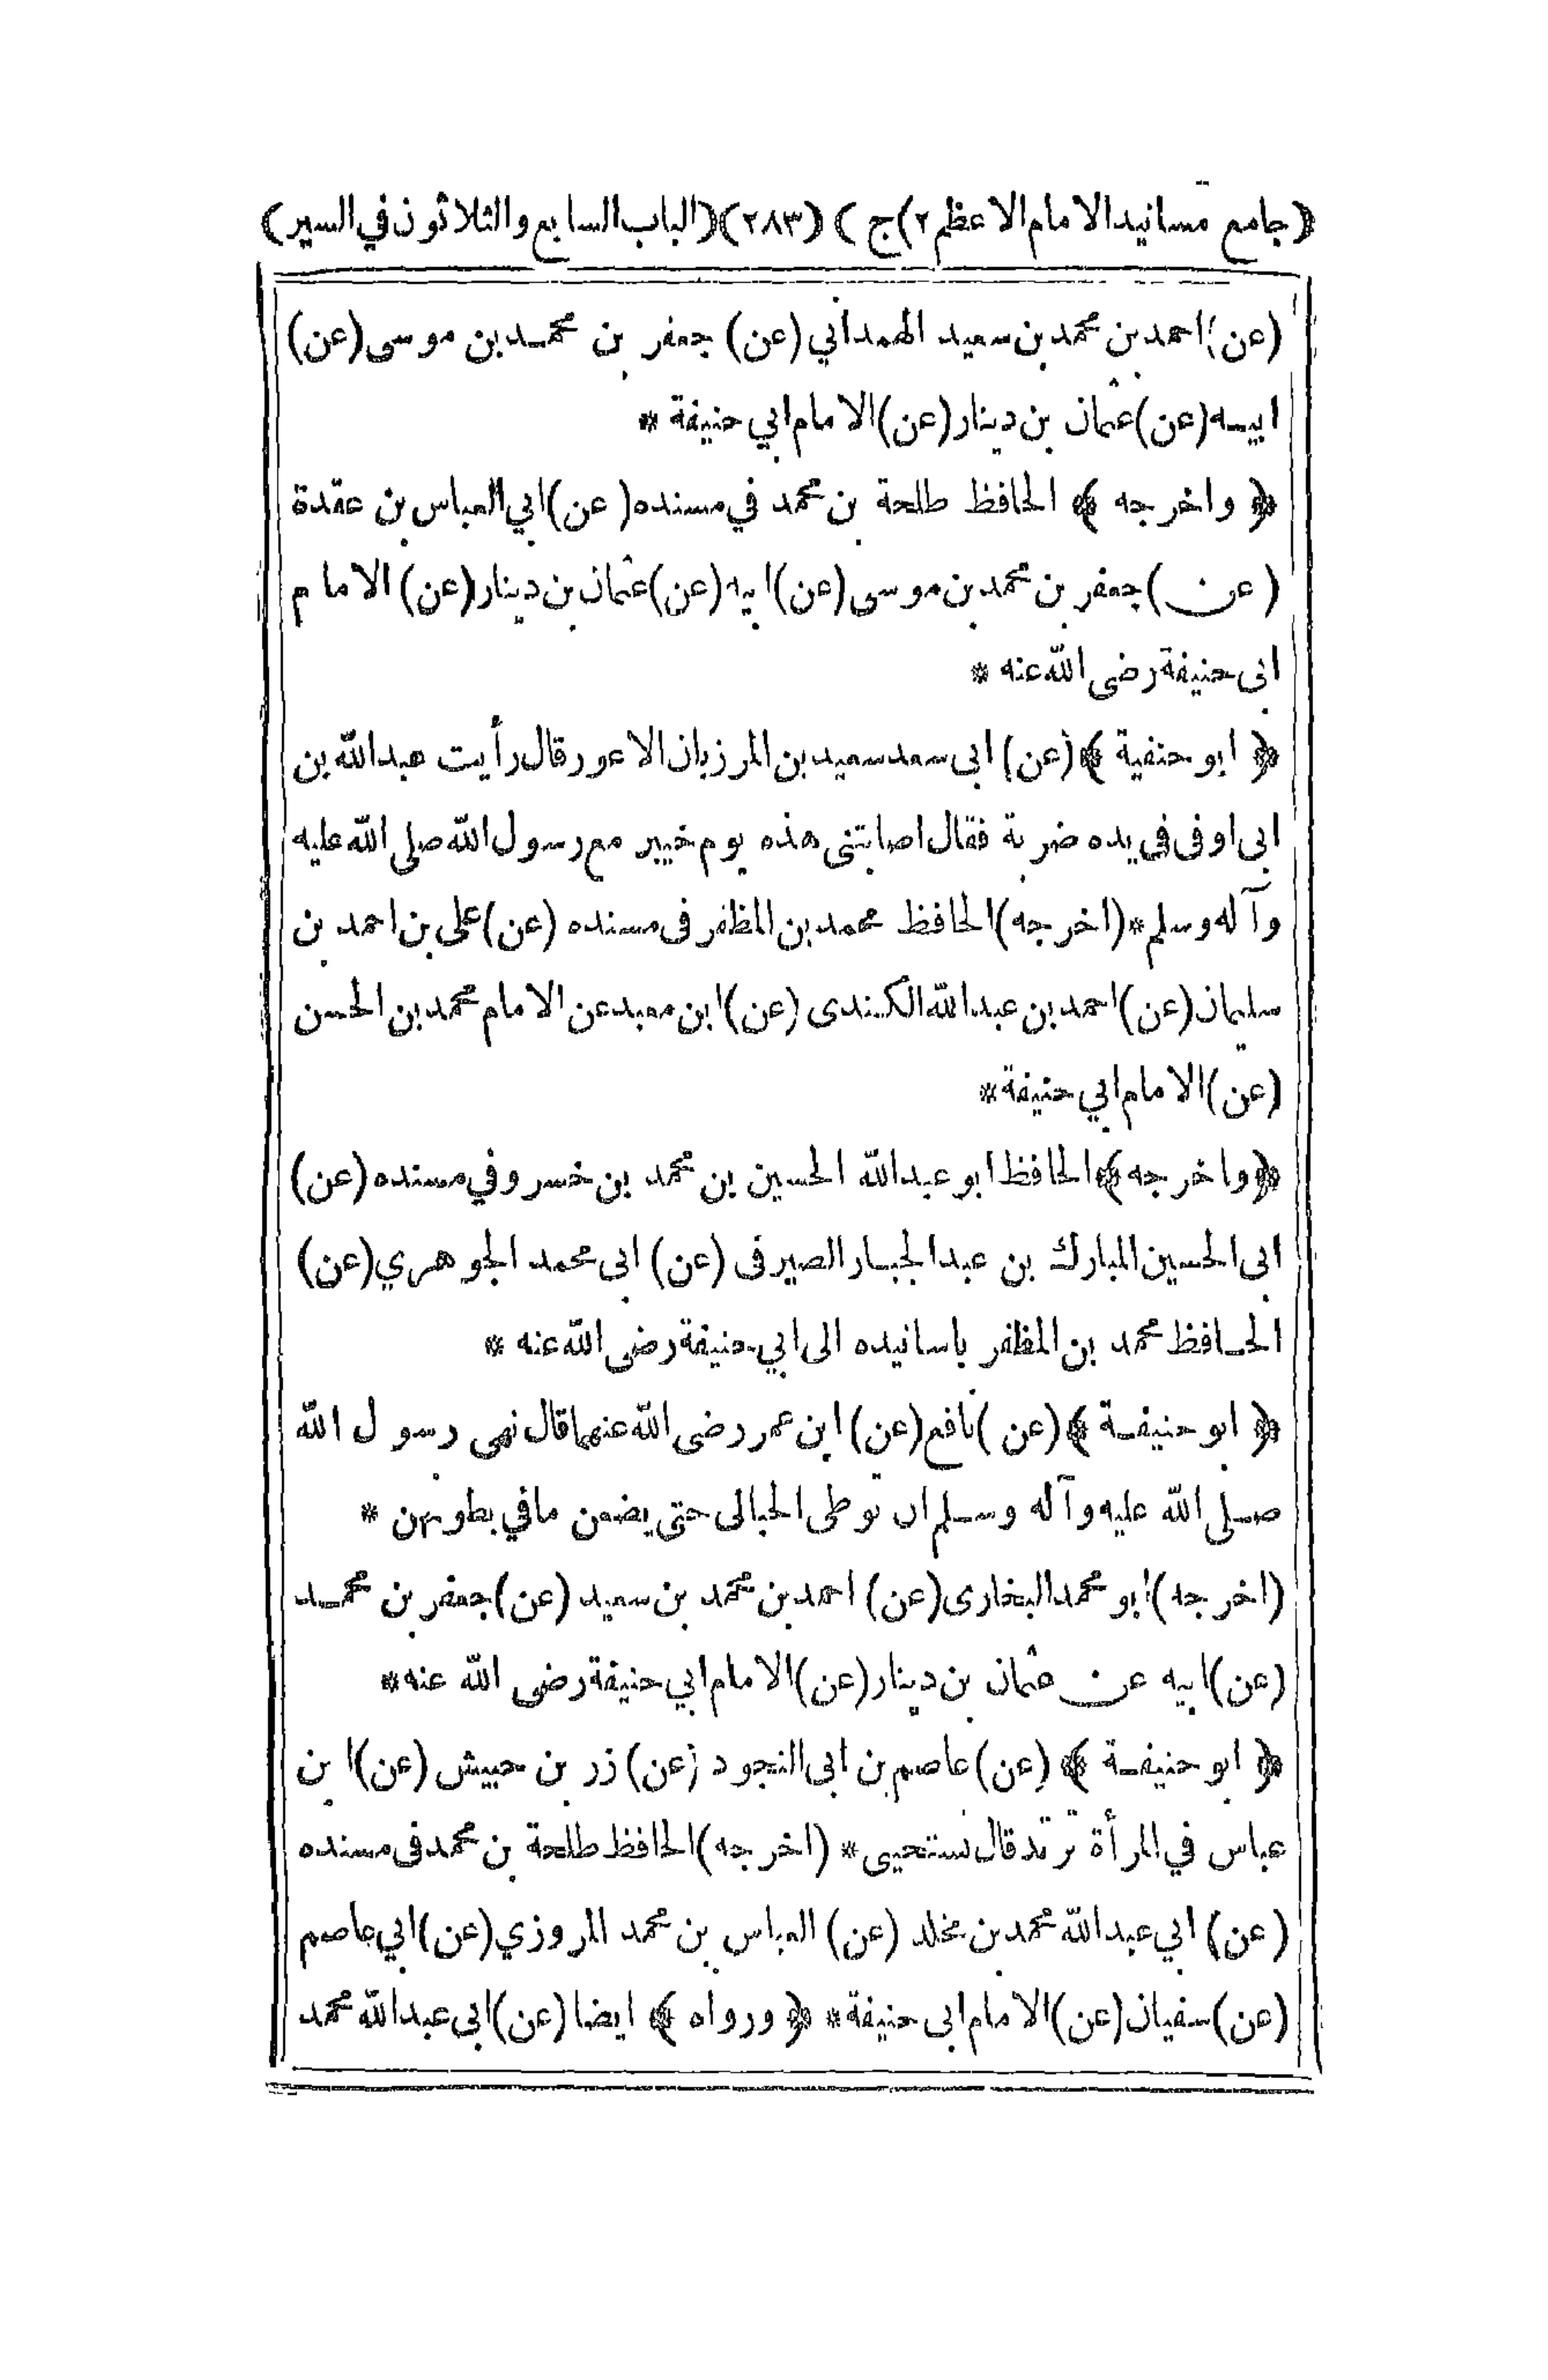 (جامع مسانيد الامام الاعظم ٢) ج ) (٢٨٣) (الباب السابع والثلاثون في السير)
(عن) احمد بن محمد بن سعيد الهمداني (عن) جعفر بن محمد بن موسى (عن)
ابيه (عن) عثمان بن دينار (عن) الامام ابي حنيفة *
﴿ واخرجه ﴾ الحافظ طلحة بن محمد في مسنده (عن) ابي العباس بن عقدة
(عن) جعفر بن محمد بن موسى (عن) ابيه (عن) عثمان بن دينار (عن) الامام
ابى حنيفة رضى الله عنه *
﴿ ابو حنفية ﴾ (عن) ابى سعد سعيد بن المرزبان الاعور قال رأيت عبدالله بن
ابى اوفى فى يده ضربة فقال اصابتنى هذه يوم خيبر مع رسول الله صلى الله عليه
وآله وسلم * (اخرجه) الحافظ محمد بن المظفر فى مسنده (عن) على بن احمد بن
سليمان (عن) احمد بن عبدالله الكندى (عن) ابن معبد عن الامام محمد بن الحسن
(عن) الامام ابي حنيفة *
﴿ واخرجه ﴾ الحافظ ابو عبدالله الحسين بن محمد بن خسرو في مسنده (عن)
ابى الحسين المبارك بن عبدالجبار الصيرفى (عن) ابى محمد الجوهري (عن)
الحافظ محمد بن المظفر باسانيده الى ابي حنيفة رضى الله عنه *
﴿ ابو حنيفة ﴾ (عن) نافع (عن) ابن عمر رضى الله عنهما قال نهى رسول الله
صلى الله عليه وآله وسلم ان توطى الحبالى حتى يضعن ما في بطونهن *
(اخرجه) ابو محمد البخارى (عن) احمد بن محمد بن سعيد (عن) جعفر بن محمد
(عن) ابيه عن عثمان بن دينار (عن) الامام ابي حنيفة رضى الله عنه *
﴿ ابو حنيفة ﴾ (عن) عاصم بن ابى النجود (عن) زر بن حبيش (عن) ابن
عباس في المرأة ترتد قال تستحيى * (اخرجه) الحافظ طلحة بن محمد فى مسنده
(عن) ابي عبدالله محمد بن مخلد (عن) العباس بن محمد المروزي (عن) ابي عاصم
(عن) سفيان (عن) الامام ابى حنيفة * ﴿ ورواه ﴾ ايضا (عن) ابى عبدالله محمد